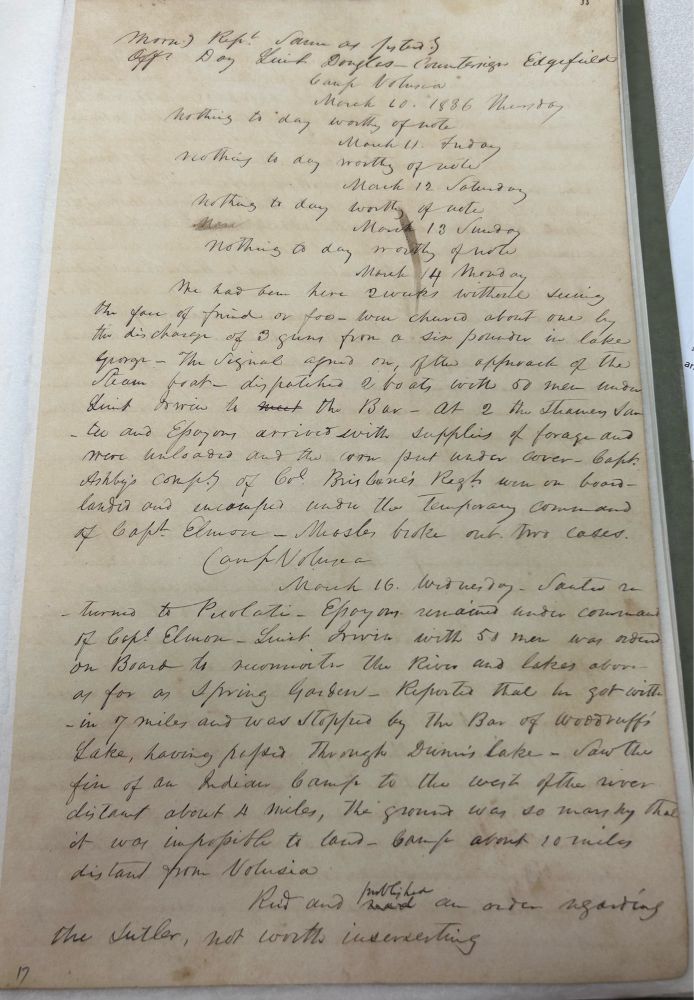 33
Morng Rept Same as yesterdy
Off. Day Lieut Douglas - Countersign Edgefield
Camp Volusia
March 10. 1836 Thursday
nothing to day worthy of note
March 11. Friday
nothing to day worthy of note
March 12 Saturday
nothing to day worthy of note
March 13 Sunday
nothing to day worthy of note
March 14 Monday
We had been here 2 weeks without seeing
the face of friend or foe - were cheared about one by
the discharge of 3 guns from a six pounder in lake
George - The signal agreed on, of the approach of the
Steam boat - dispatched 2 boats with 50 men under
Lieut Irwin to meet the Bar - At 2 the steamers San
-tee and Essayons arrived with supplies of forage and
were unloaded and the corn put under cover - Capt.
Ashby's compy of Col. Brisbane's Regt were on board -
landed and encamped under the temporary command
of Capt. Elmore - Measles broke out. two cases.
Camp Volusia
March 16. Wednesday - Santee re
-turned to Picolati - Essayons remained under command
of Capt Elmore - Lieut Irwin with 50 men was ordered
on Board to reconnoitre the River and lakes above
as far as Spring Garden - Reported that he got with
-in 7 miles and was stopped by the Bar of Woodruff's
Lake, having passed through Dunn's lake - Saw the
fire of an Indian Camp to the west of the river
distant about 4 miles, the ground was so marshy that
it was impossible to land - Camp about 10 miles
distant from Volusia
Recd and published an order regarding
the Sutler, not worth inserserting
17